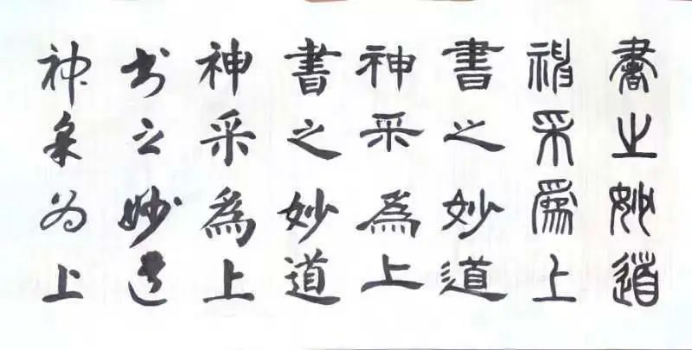 書之妙道
神采爲上
書之妙道
神采爲上
書之妙道
神采爲上
书之妙道
神采为上